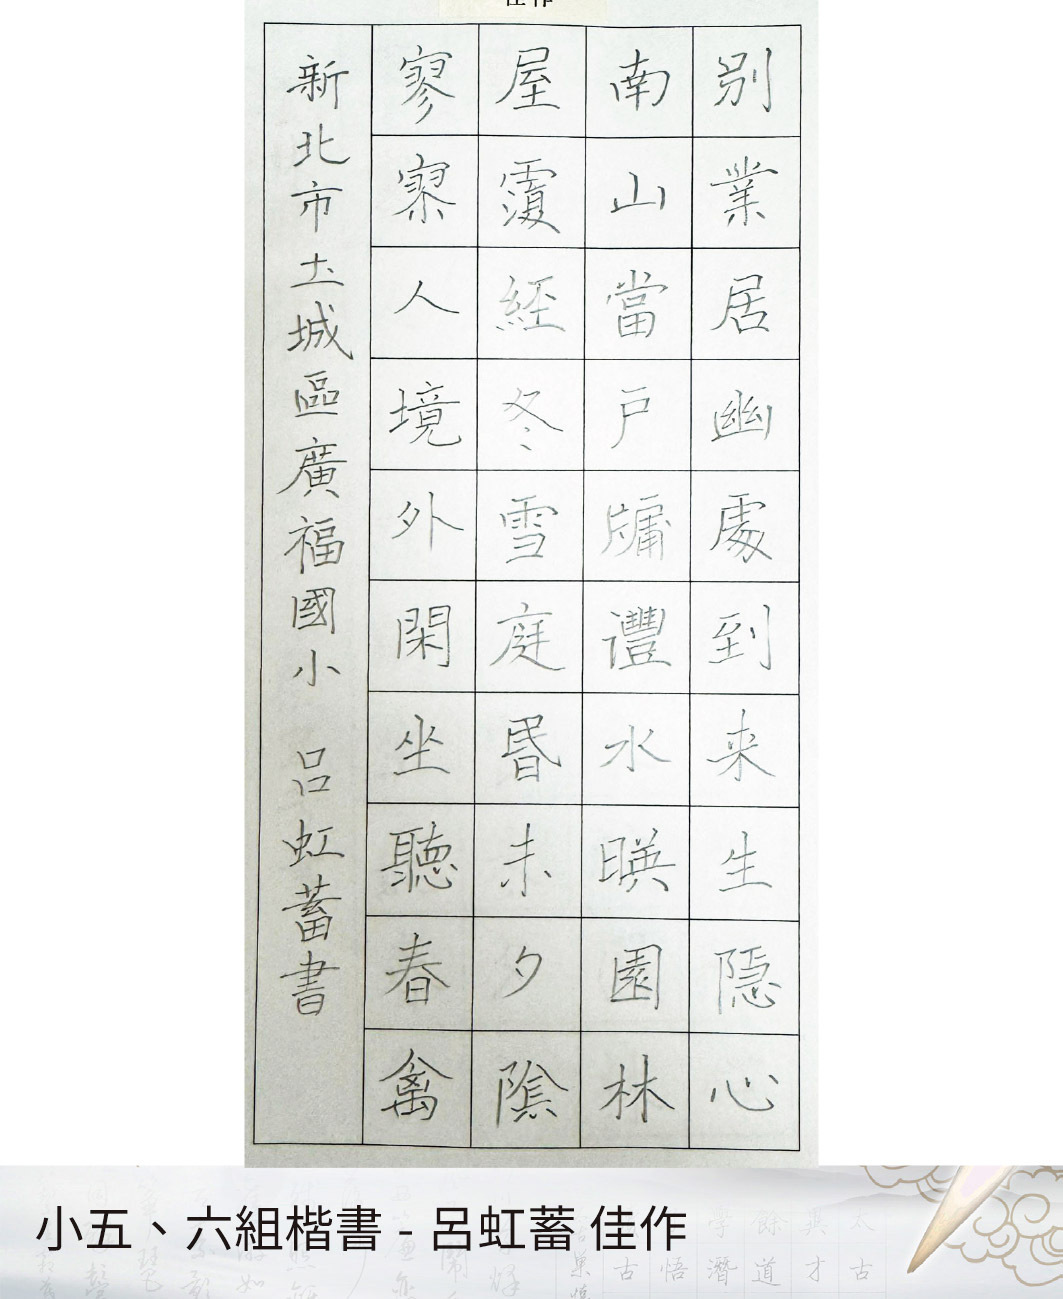 佳作
别業居幽處到来生隱心
南山當戶牖灃水暎園林
屋覆經冬雪庭昬未夕陰
寥寥人境外閑坐聽春禽
新北市土城區廣福國小 呂虹蓄書
小五、六組楷書 - 呂虹蓄 佳作